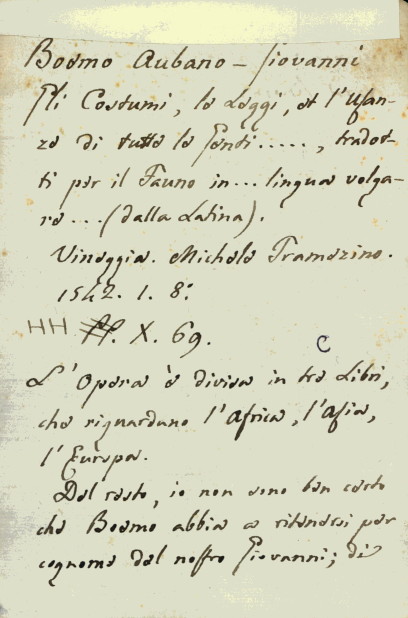 Boemo Aubano – Giovanni
Gli Costumi, le Leggi, et l'Usan-
ze di tutte le Genti....., tradot-
ti per il Fauno in... lingua volga-
re... (dalla Latina).
Vineggia. Michele Tramezino.
1542. 1. 8:
HH X. 69.
C
L'Opera è divisa in tre Libri,
che riguardano l'Africa, l'Asia,
l'Europa.
Del resto, io non sono ben certo
che Boemo abbia a ritenersi per
cognome del nostro Giovanni; di